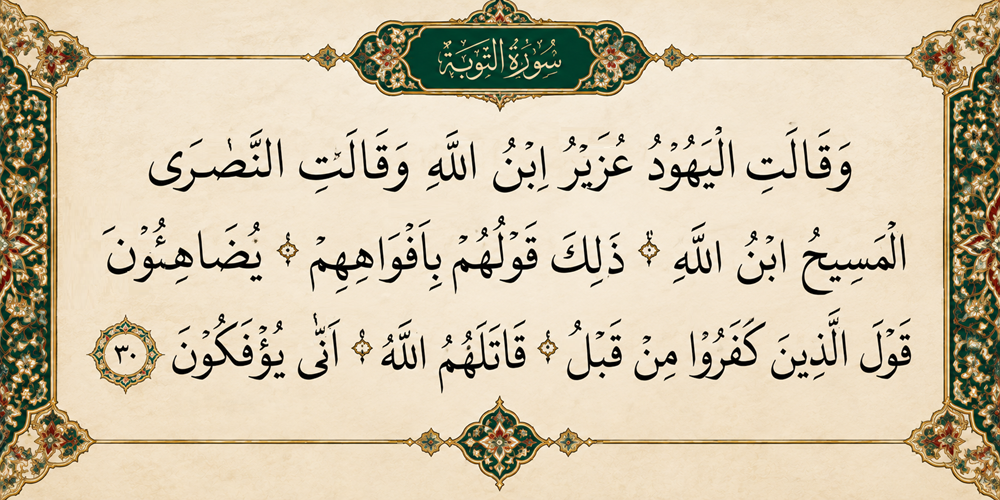 سُورَةُ التَّوْبَةِ
وَقَالَتِ الْيَهُوْدُ عُزَيْرُ اِبْنُ اللَّهِ وَقَالَتِ النَّصٰرَى
الْمَسِيحُ ابْنُ اللَّهِ ۖ ذَلِكَ قَوْلُهُمْ بِاَفْوَاهِهِمْ ۖ يُضَاهِئُوْنَ
قَوْلَ الَّذِينَ كَفَرُوْا مِنْ قَبْلُ ۖ قَاتَلَهُمُ اللَّهُ ۖ اَنّٰى يُؤْفَكُوْنَ ٣٠